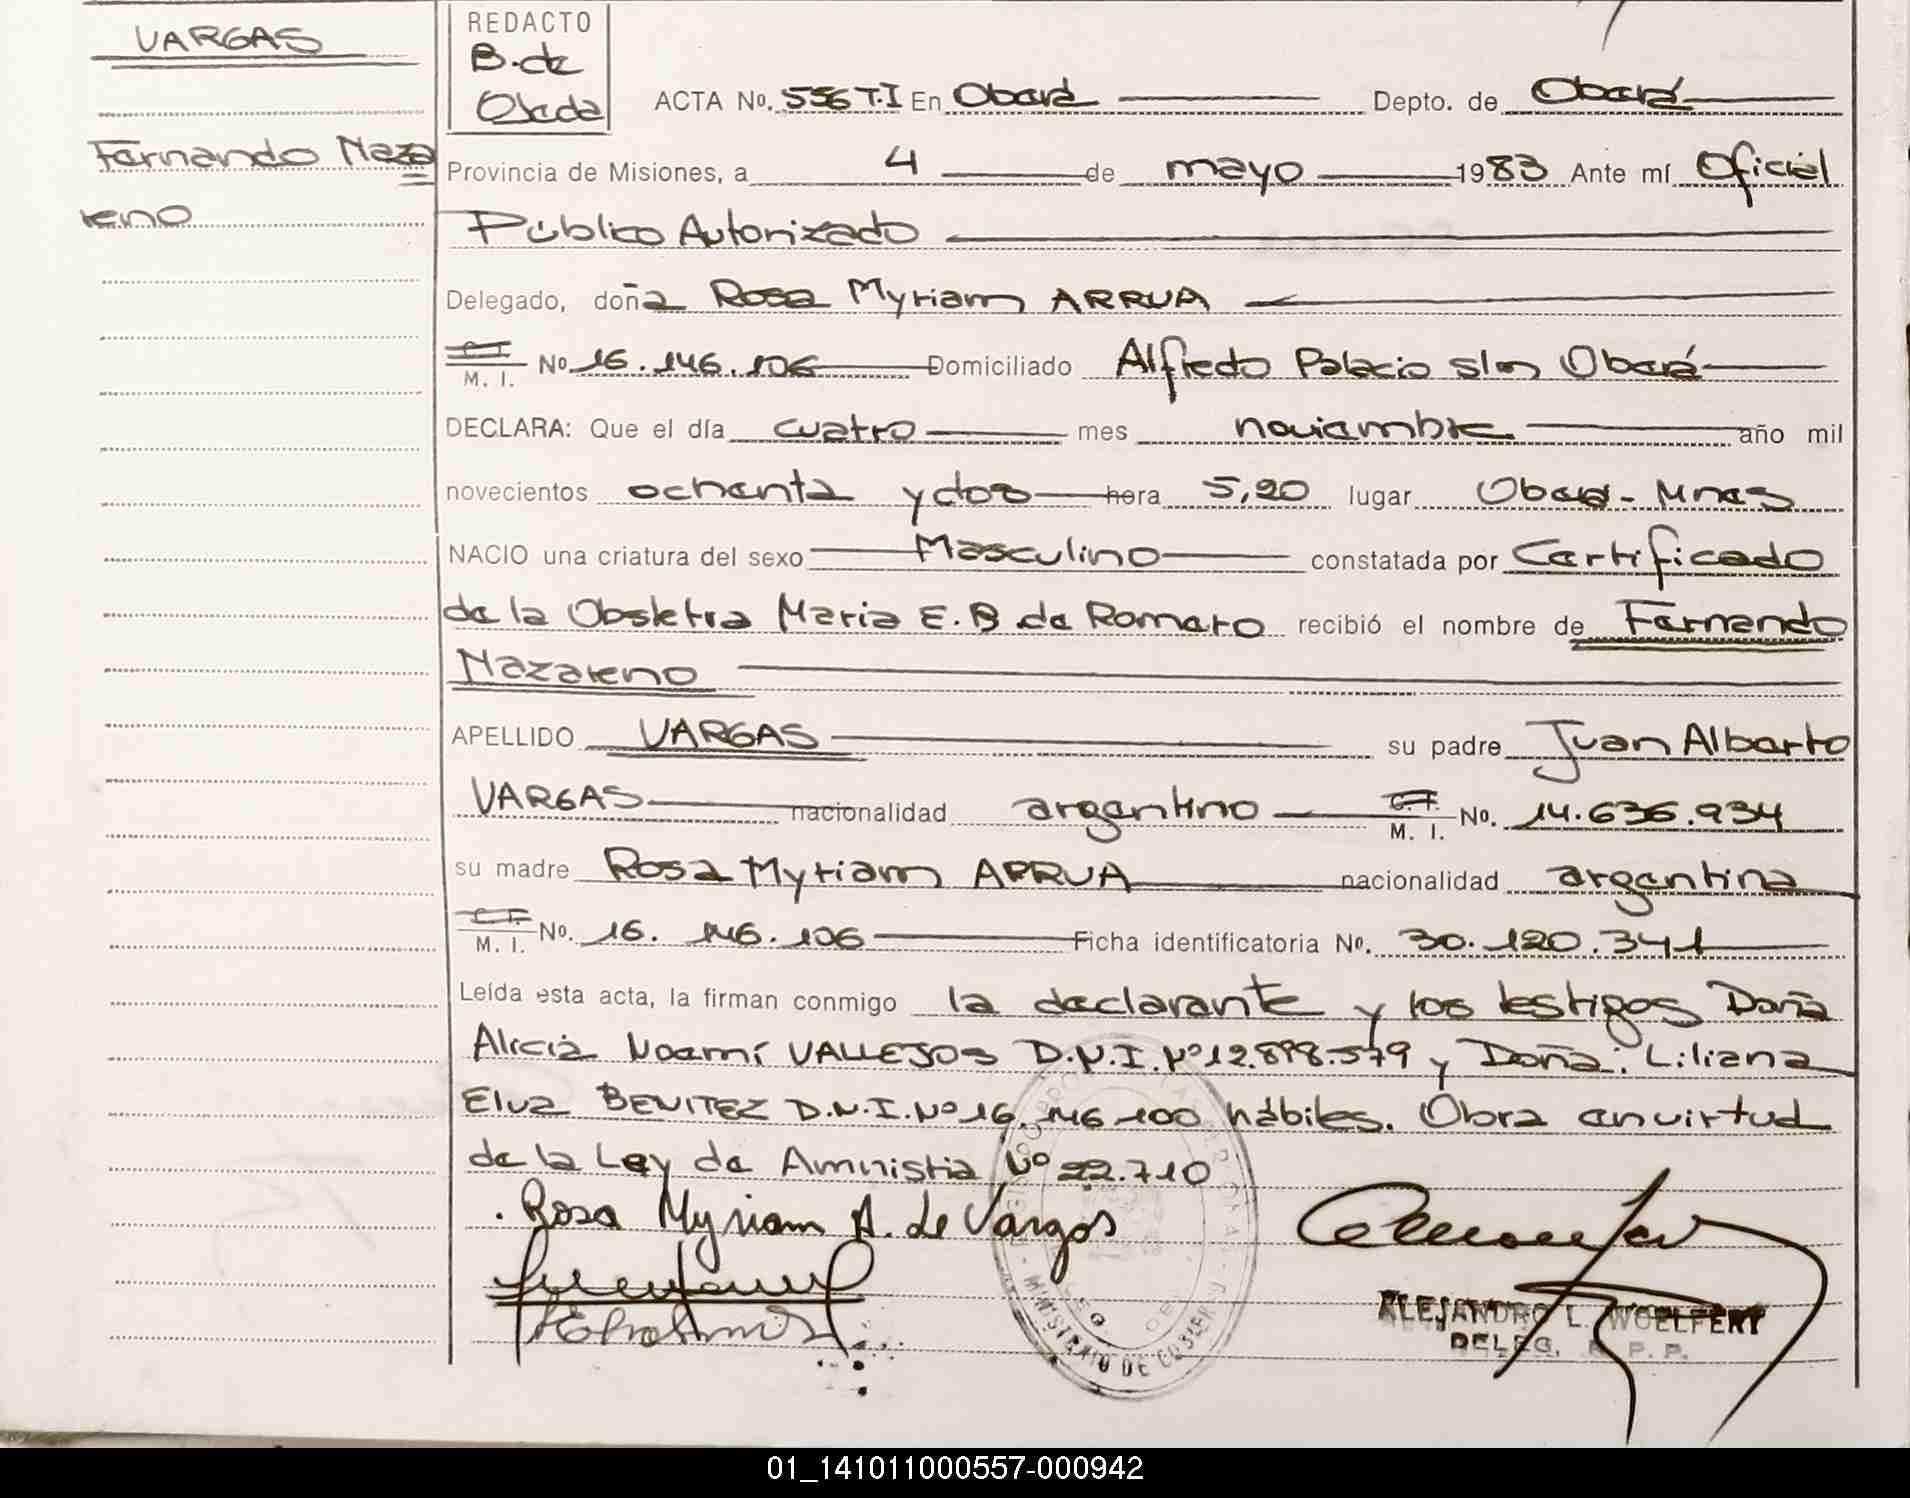 VARGAS
Fernando Naza
reno
REDACTO
B. de
Ojeda
ACTA No. 556 T.I En Oberá Depto. de Oberá
Provincia de Misiones, a 4 de mayo 1983 Ante mí Oficial
Público Autorizado
Delegado, doña Rosa Myriam ARRUA
C.I. M. I. No 16.146.106 Domiciliado Alfredo Palacio s/n Oberá
DECLARA: Que el día cuatro mes noviembre año mil
novecientos ochenta y dos hora 5,20 lugar Oberá - Mnes
NACIO una criatura del sexo Masculino constatada por Certificado
de la Obstetra Maria E. B de Romero recibió el nombre de Fernando
Nazareno
APELLIDO VARGAS su padre Juan Alberto
VARGAS nacionalidad argentino C.I. M. I. No. 14.636.934
su madre Rosa Myriam ARRUA nacionalidad argentina
C.I. M. I. No. 16.146.106 Ficha identificatoria No. 30.120.341
Leída esta acta, la firman conmigo la declarante y los testigos Doña
Alicia Noemí VALLEJOS D.N.I. Nº 12.898.579 y Doña: Liliana
Elva BENITEZ D.N.I. Nº 16.146.100 hábiles. Obra en virtud
de la Ley de Amnistia Nº 22.710
Rosa Myriam A. de Vargas
MINISTERIO DE GOBIERNO
ALEJANDRO L. WOELFERT
DELEG. R. P. P.
01_141011000557-000942